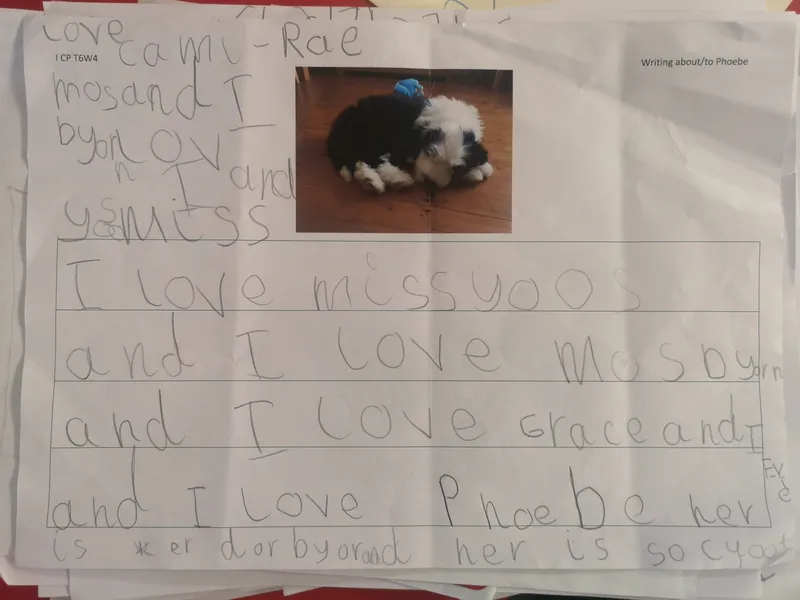 love cami-Rae
I CP T6W4
Writing about/to Phoebe
mosand I
byorn
I and
miss
I love missyoos
and I love mosbyorn
and I love Grace and I
Eve
and I love Phoebe her
is er dorbyor and her is so